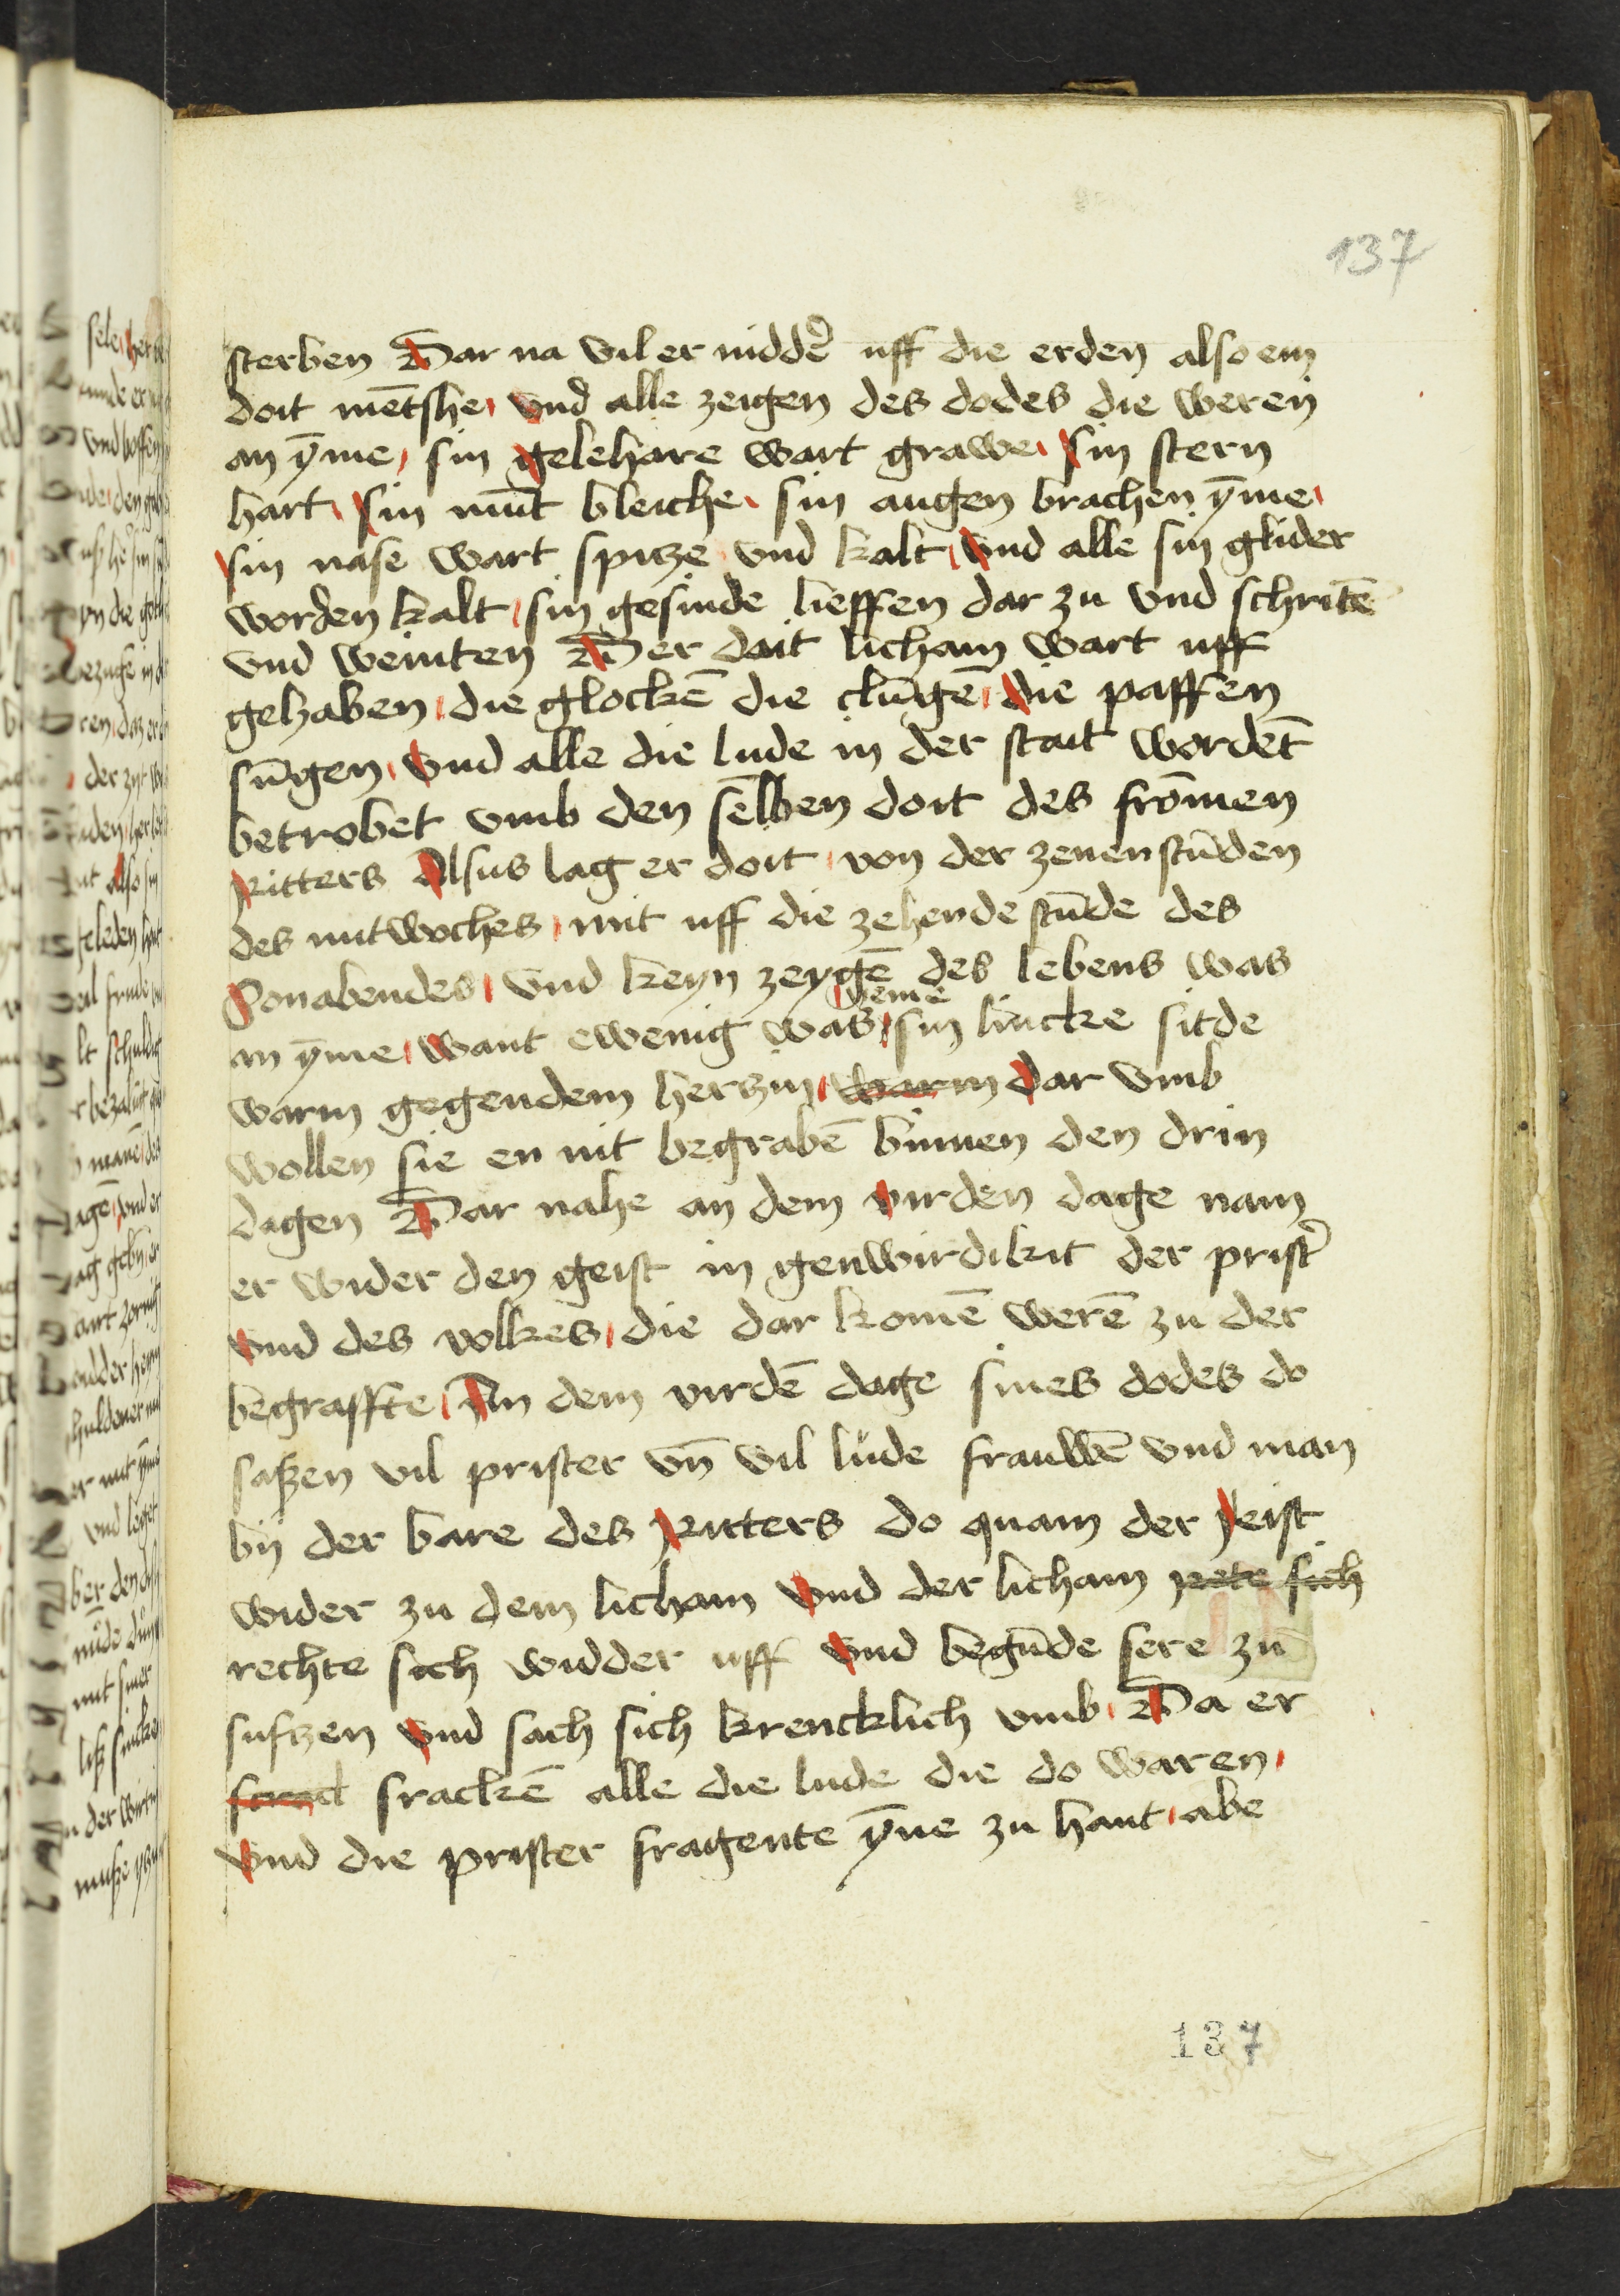 137
sterben Dar na vil er nidd&#x27;e uff die erden also ein
doit mēt­she vnd alle zeigen des dodes die weren
an ȳme sin gelehare wart grawe sin stern
hart sin mūt bleiche sin augen brachen ȳme
sin nase wart spitze vnd kalt vnd alle sin glider
worden kalt sin gesinde lieffen dar zu vnd schritē
vnd weinten Der doit licham wart uff
gehaben die glockē die clūgē die paffen
sūgen vnd alle die lude in der stait wordēt
betrobet vmb den selben doit des frōmen
Ritters Alsus lag er doit von der zenen stūden
des mitwoches mit uff die zehende stūde des
Sonabendes vnd keyn zeygē des lebens was
an ȳme want ewenig was sin lincke sitde
warm gegendem herzin warm dar vmb
wollen sie en nit begrabē binnen den drin
dagen Dar nahe an dem virden dage nam
er wider den geist in genwirdikit der prist&#x27;
vnd des volkes die dar komē werē zu der
begraffte An dem virdē dage sines dodes do
saßen vil prister vn̄ vil lude frauwē vnd man
bij der bare des Ritters do quam der geist
wider zu dem licham vnd der licham rete sich
rechte sich widder uff vnd begūde sere zu
sufzen vnd sach sich krencklich vmb Da er
sracl srackē alle die lude die do waren
vnd die prister fragente ȳne zu hant abe
137